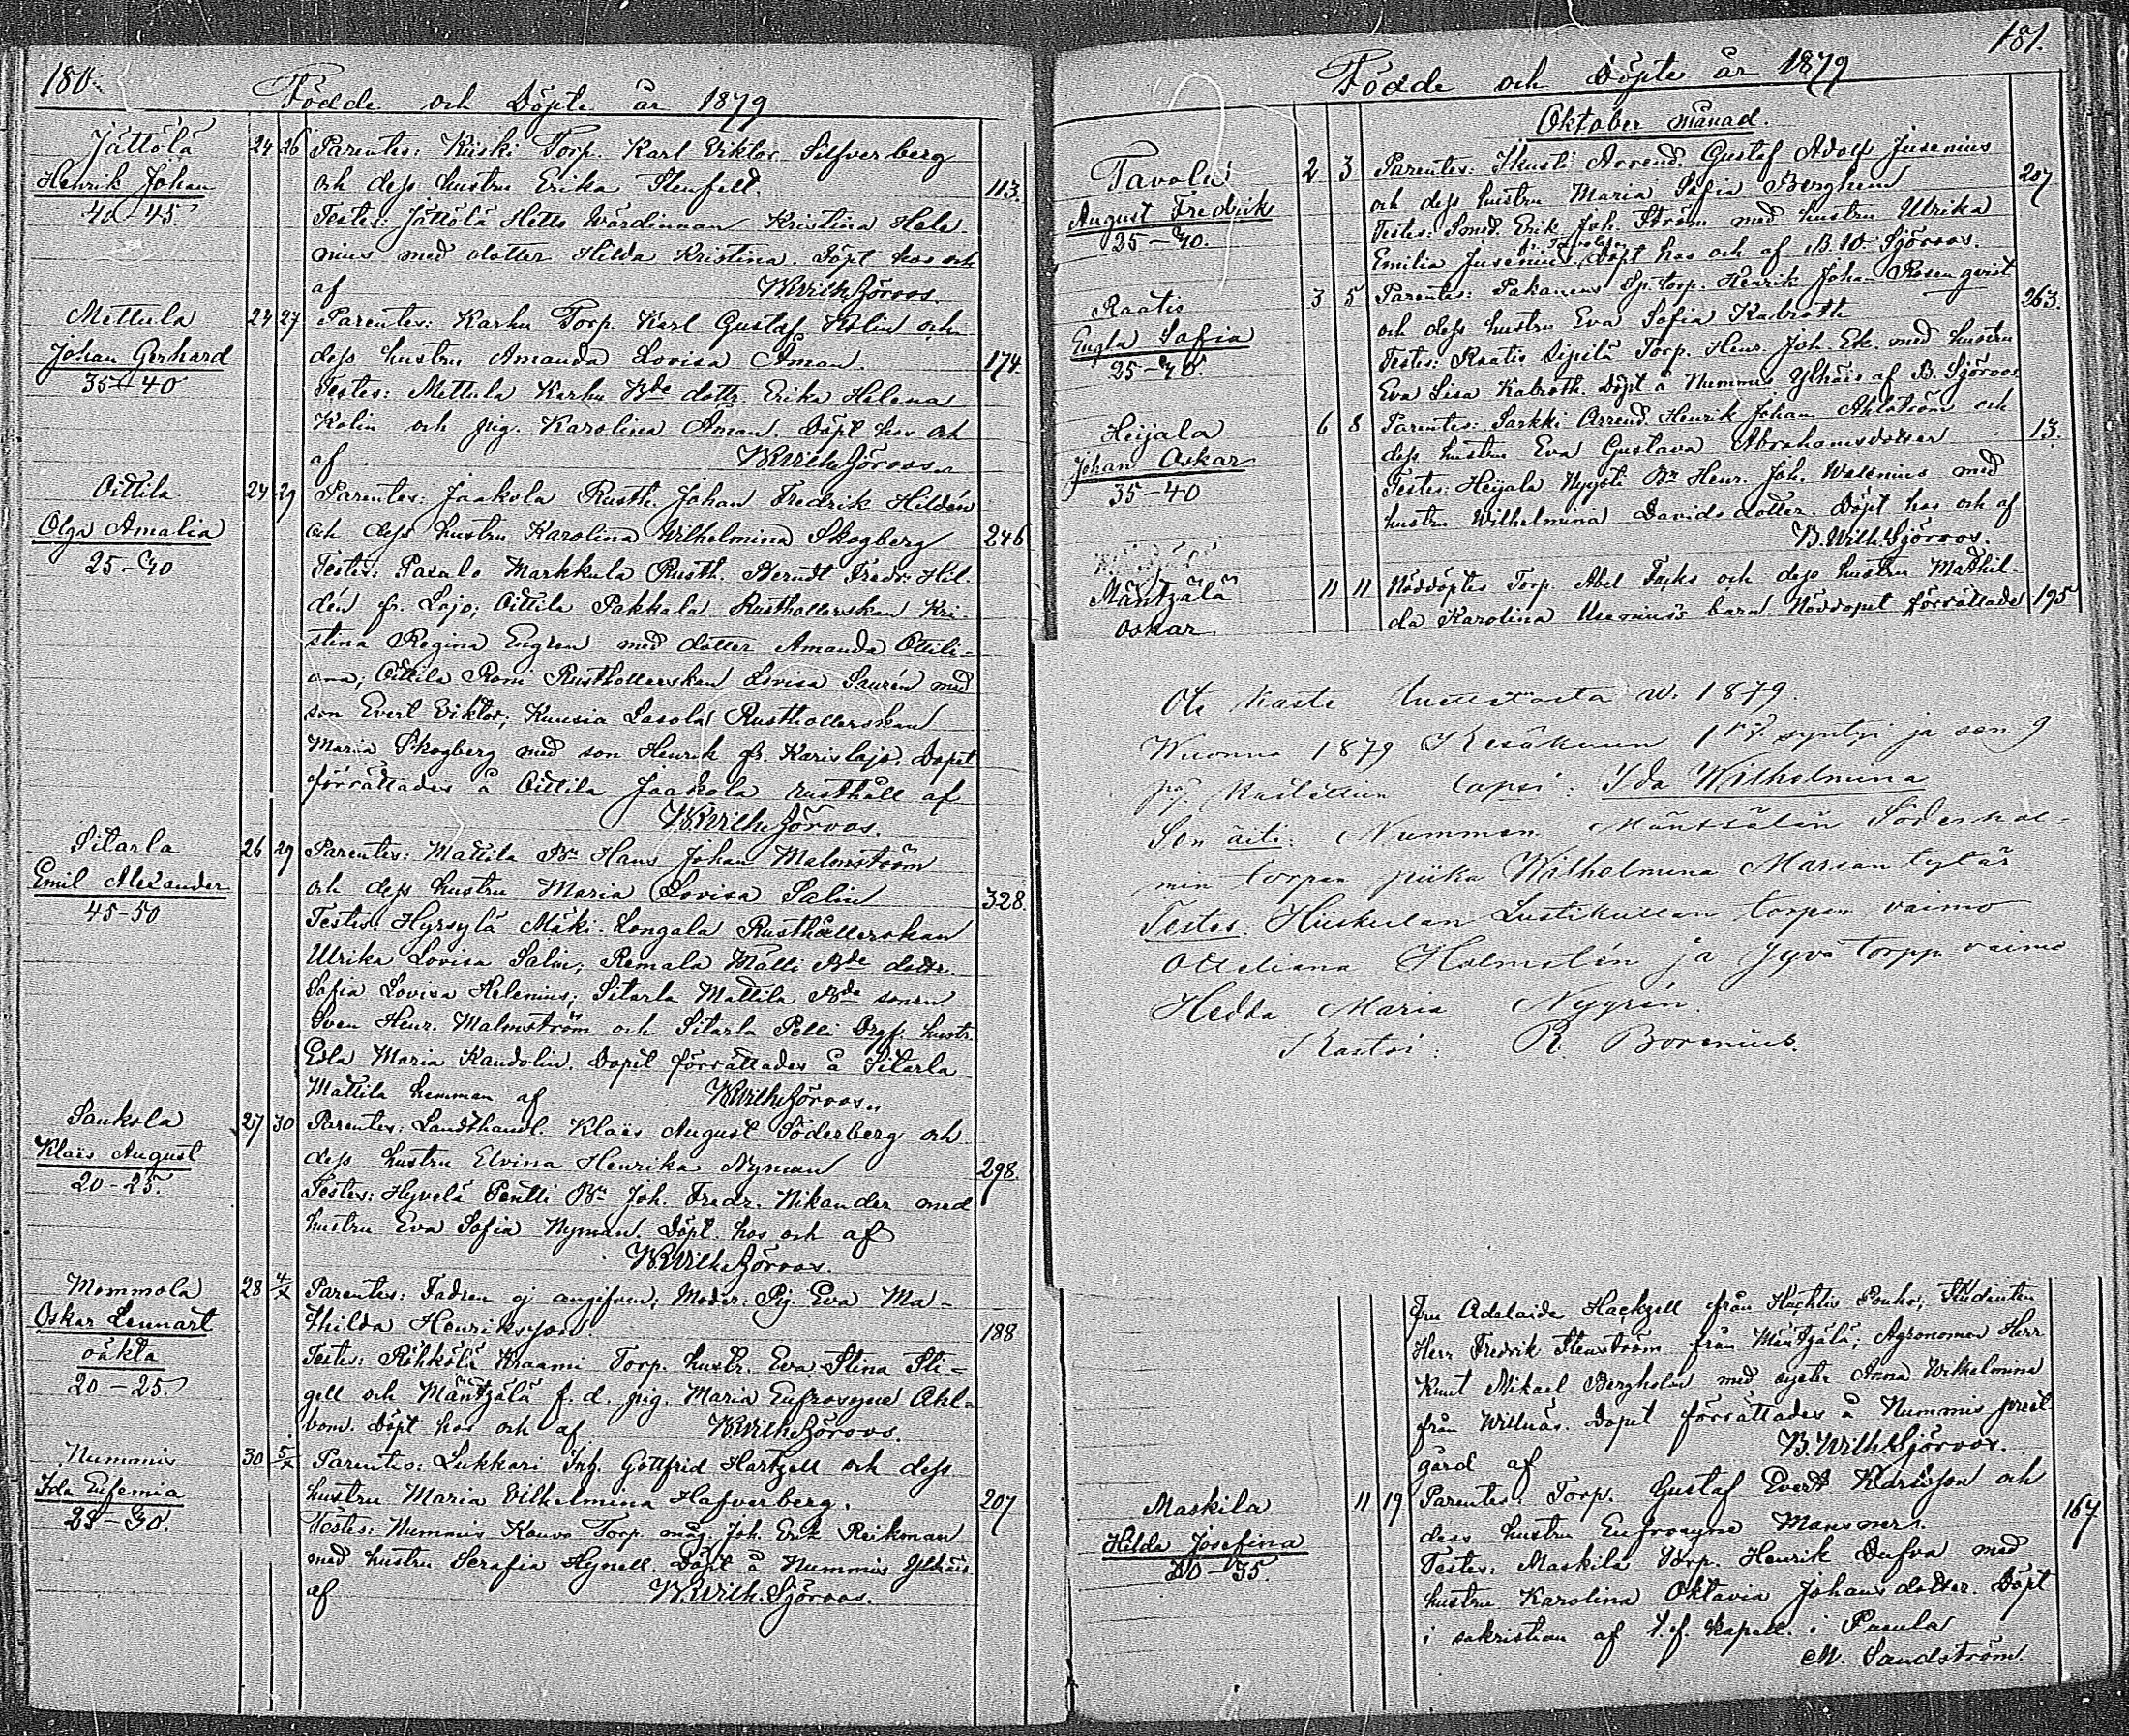 180.
Födde och Döpte år 1879
Jättölä
Henrik Johan
40-45.
24 26 Parentes: Kiiski Torp. Karl Viktor Silfverberg
och dess hustru Erika Stenfelt.
113.
Testes: Jättölä Hetto Wärdinnan Kristina Hele-
nius med dotter Hilda Kristina. Döpt hos och
af B.Wilh.Sjöroos.
Mettula
Johan Gerhard
35-40
24 27 Parentes: Karhu Torp. Karl Gustaf Kolin och
dess hustru Amanda Lovisa Åman.
174.
Testes: Mettula Karhu Bde dottr. Erika Helena
Kolin och pig. Karolina Åman. Döpt hos och
af B.Wilh.Sjöroos.
Oittila
Olga Amalia
25-30
24 29 Parentes: Jaakola Rusth. Johan Fredrik Hildén
och dess hustru Karolina Wilhelmina Skogberg
246
Testes: Pasalo Markkula Rusth. Berndt Fredr. Hil-
dén fr. Lojo; Oittila Pakkala Rusthollerskan Kri-
stina Regina Engren med dotter Amanda Ottili-
ana; Oittila Roni Rusthollerskan Lovisa Saurén med
son Evert Viktor; Kuusia Lasola Rusthollerskan
Maria Skogberg med son Henrik fr. Karislojo. Dopet
förrättades å Oittila Jaakola rusthåll af
B.Wilh.Sjöroos.
Sitarla
Emil Alexander
45-50
26 29 Parentes: Mattila Bn Hans Johan Malmström
och dess hustru Maria Lovisa Salin
328.
Testes: Hyrsylä Mäki-Longala Rusthållerskan
Ulrika Lovisa Salin; Remala Mälli Bde dottr.
Sofia Lovisa Helenius; Sitarla Mattila Bde sonen
Sven Henr. Malmström och Sitarla Pelli Drgs. hustr.
Eda Maria Kandolin. Dopet förrättades å Sitarla
Mattila hemman af B.Wilh.Sjöroos.
Saukola
Klaës August
20-25.
27 30 Parentes: Landthandl. Klaës August Söderberg och
dess hustru Elvina Henrika Nyman
298.
Testes: Hyvelä Pentti Bn Joh. Fredr. Nikander med
hustru Eva Sofia Nyman. Döpt hos och af
B.Wilh.Sjöroos.
Mommola
Oskar Lennart
oäkta
20-25.
28 4/X Parentes: Fadren ej angifven; Moder: Pig. Eva Ma-
thilda Henriksson.
188
Testes: Röhkölä Kraami Torp. hustr. Eva Stina Sti-
gell och Mäntzälä f.d. pig. Maria Eufrosyne Ahl-
bom. Döpt hos och af B.Wilh.Sjöroos.
Nummis
Ida Eufemia
25-30.
30 5/X Parentes: Lukkari Inh. Gottfrid Hartzell och dess
hustru Maria Vilhelmina Hafverberg.
207
Testes: Nummis Kouvo Torp. måg. Joh. Erik Reikman
med hustru Serafia Hynell. Döpt å Nummis Ylhäis
af B.Wilh.Sjöroos.
181.
Födde och Döpte år 1879
Oktober månad.
Tavola
August Fredrik
35-40.
2 3 Parentes: Skusti Arrend. Gustaf Adolf Jusenius
och dess hustru Maria Sofia Berghem
207
Testes: Smed. Erik Joh. Ström med hustru Ulrika
Emilia Jusenius. Döpt hos och af B.W. Sjöroos.
Raatis
Engla Sofia
35-40.
3 5 Parentes: Pakanens Sp.torp. Henrik Johan Rosenqvist
och dess hustru Eva Sofia Kabroth
263.
Testes: Raatis Sipilä Torp. Henr. Joh. Ek. med hustru
Eva Lisa Kabroth. Döpt å Nummis Ylhäis af B. Sjöroos.
Heijala
Johan Oskar
35-40
6 8 Parentes: Sarkki Arrend. Henrik Johan Ahlström och
dess hustru Eva Gustava Abrahamsdotter
13.
Testes: Heijala Nyysti Bn Henr. Joh. Walenius med
hustru Wilhelmina Davidsdotter. Döpt hos och af
B.Wilh.Sjöroos.
Mäntzälä
Oskar
11 11 Nöddöptes Torp. Abel Fucks och dess hustru Mathil-
da Karolina Usenius's barn. Nöddopet förrättades
195
Ote Kaste luettelosta w. 1879.
Wuonna 1879 Kesäkuun 1 p. syntyi ja sen 9
p. Kastettiin lapsi: Ida Wilhelmina
Sen äiti: Nummen Mäntsälän Söderhol-
min torpan piika Wilhelmina Marian tytär
Testes. Hiiskulan Lustikullan torpan vaimo
Otteliana Holmstén ja Jyvä torpp. vaimo
Hedda Maria Nygrén.
Kastoi: R. Borenius.
Fru Adelaide Hackzell från Huchlis Pouho; Studenten
Herr Fredrik Stenström från Mäntzälä; Agronomen Herr
Knut Mikael Bergholm med syster Anna Wilhelmina
från Willnäs. Dopet förrättades å Nummis prest
gård af B.Wilh.Sjöroos.
Maskila
Hilda Josefina
30-35.
11 19 Parentes: Torp. Gustaf Evert Karlsson och
dess hustru Eufrosyne Mansners.
167.
Testes: Maskila Torp. Henrik Dufva med
hustru Karolina Oktavia Johansdotter. Döpt
i sakristian af t.f. kapell. i Pusula
M. Sandström.